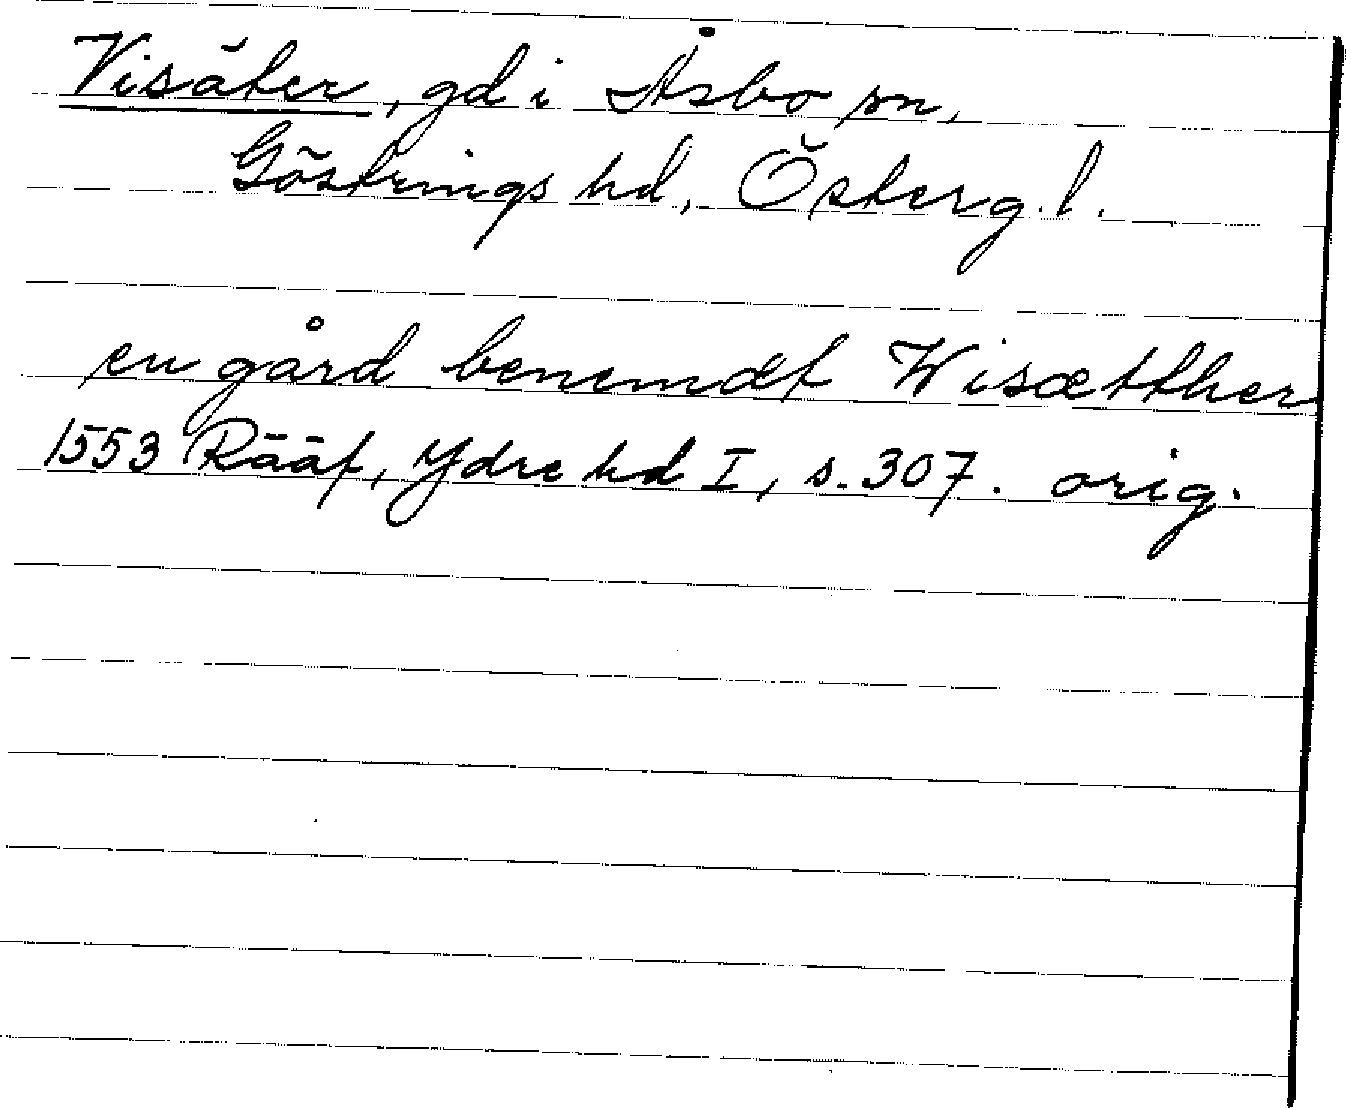 Visäter, gd i Åsbo sn,
Göstrings hd, Österg.l.
en gård benemdt Wisætther
1553 Rääf, Ydre hd I, s. 307. orig.